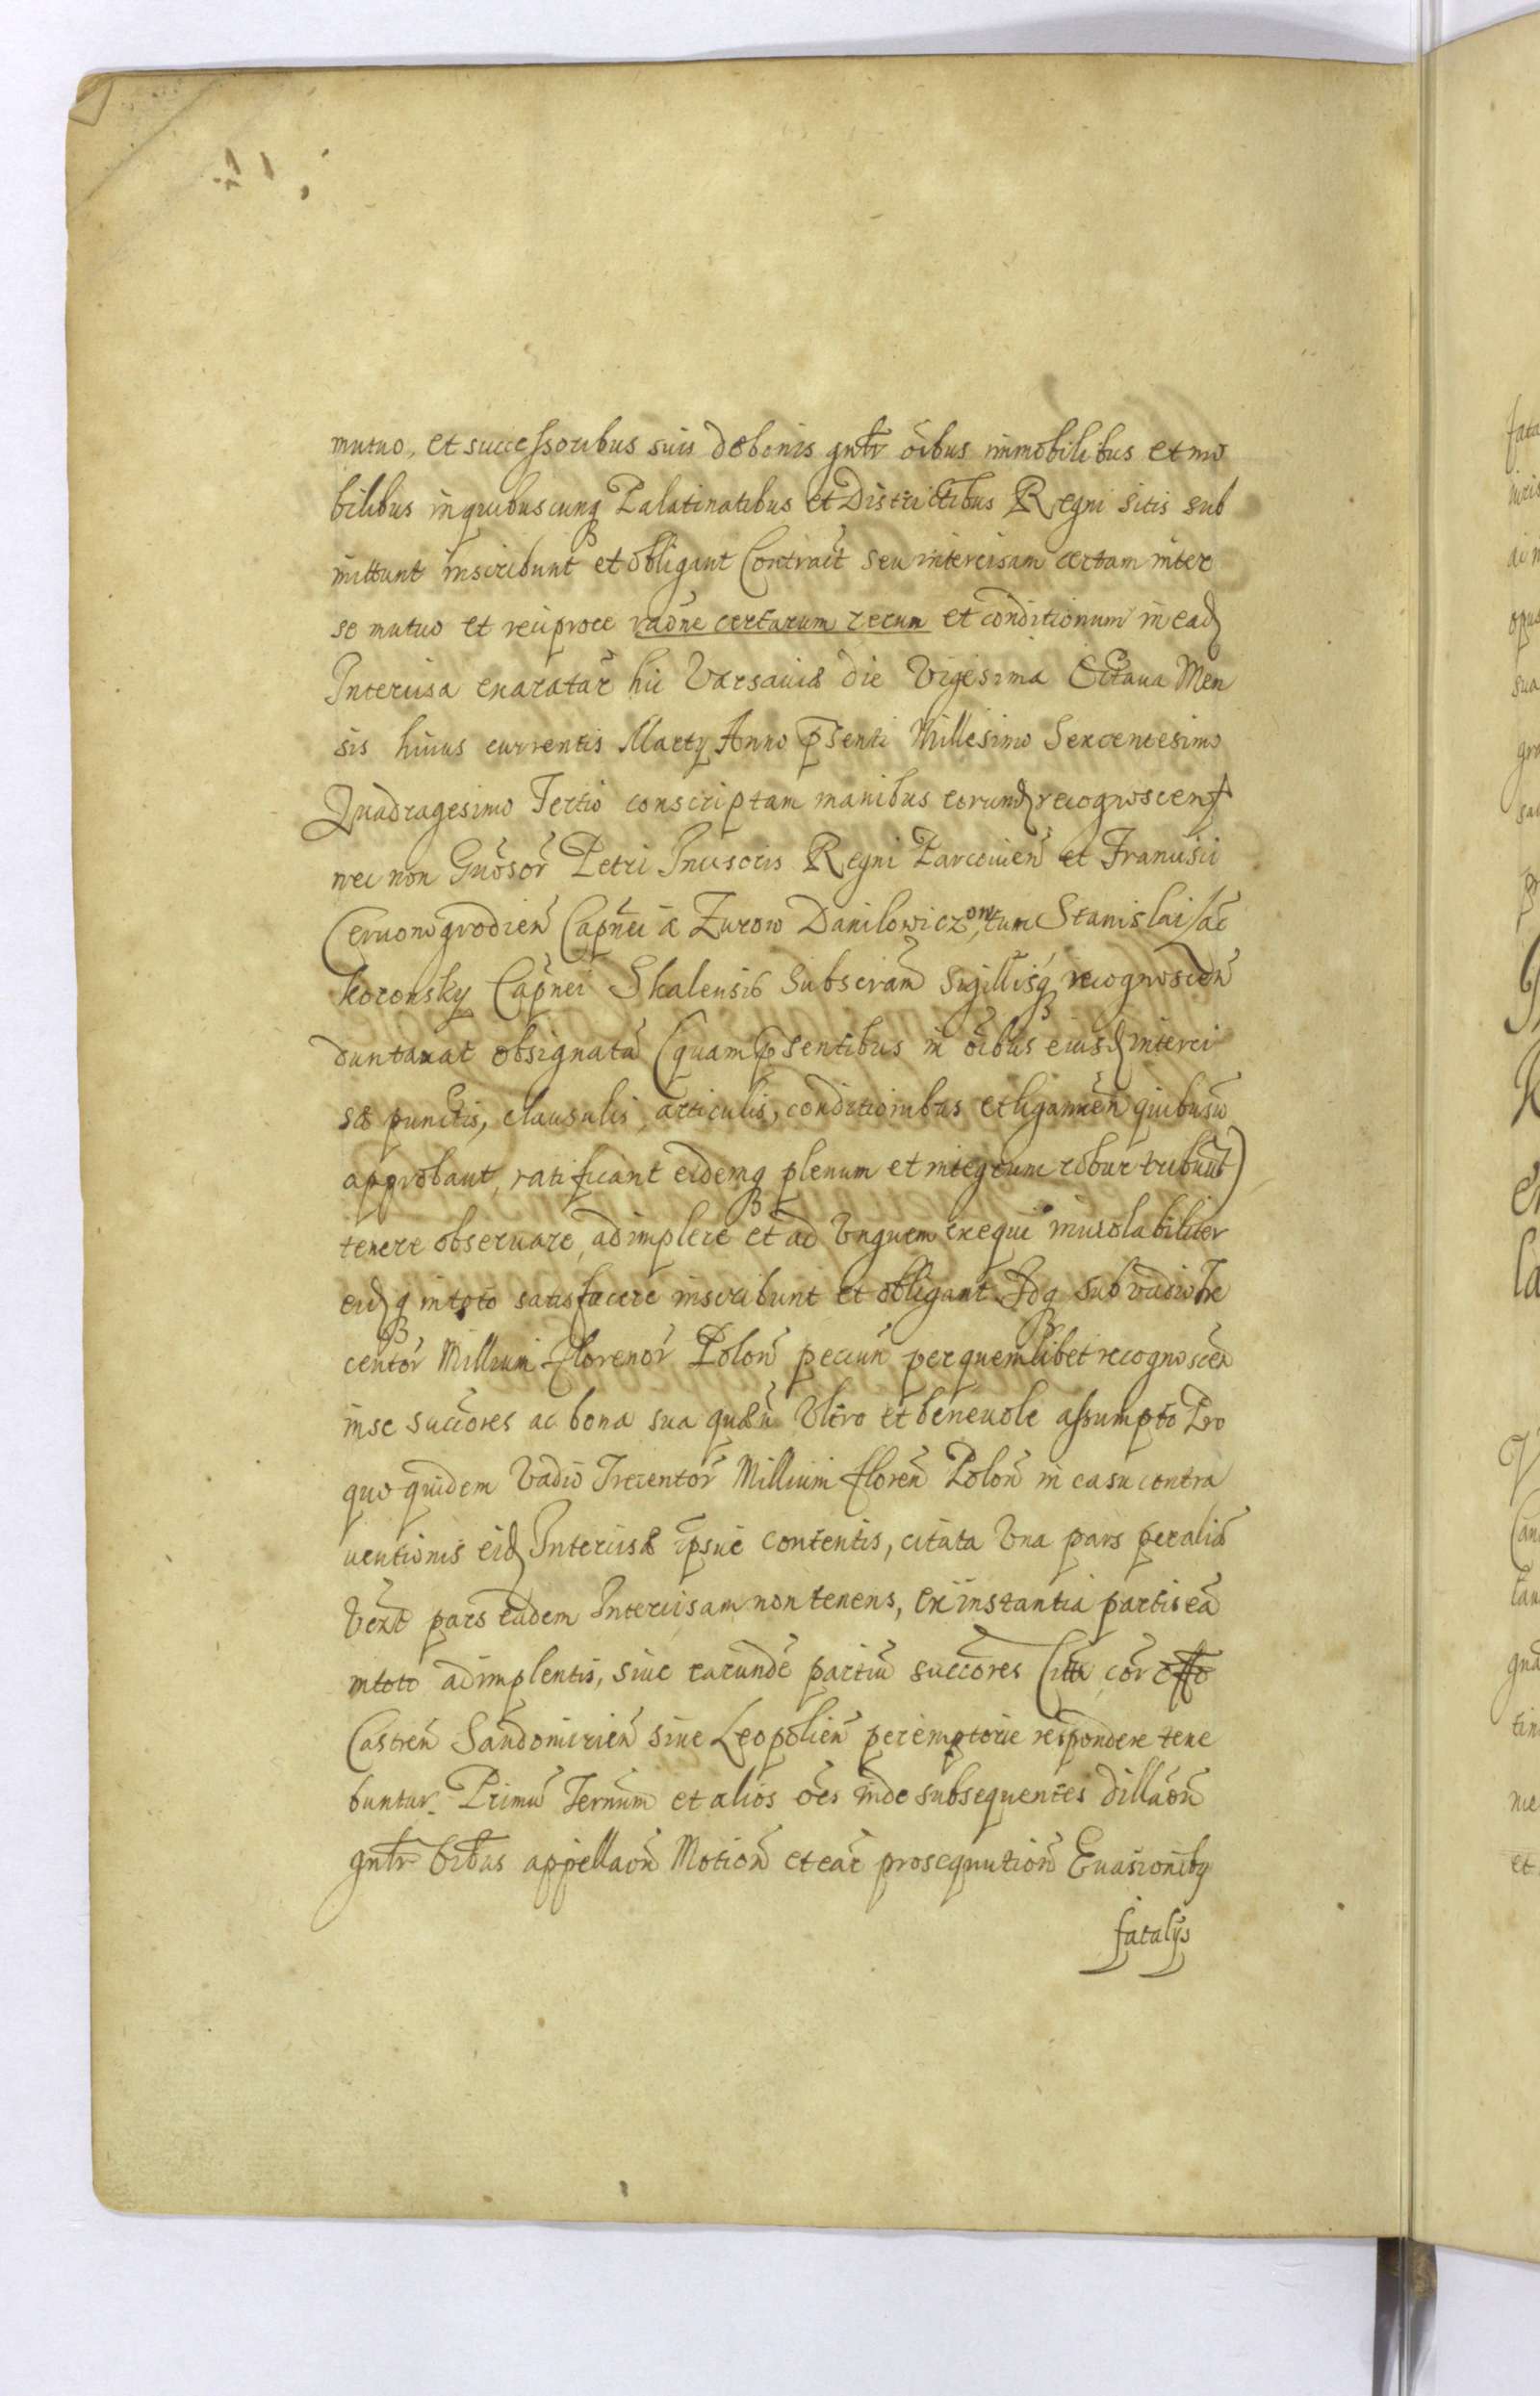 mutuo, et successoribus suis de bonis gnlr oibus immobilibus et mo
bilibus in quibuscunq Palatinatibus et Districtibus Regni sitis sub
mittunt inscribunt et obligant Contract seu intercisam certam inter
se mutuo et reciproce raone certarum rerum et conditionum in ead
Intercisa enaratar hic Varsaviæ die Vigesima Octava Men
sis huius currentis Martij Anno psenti Millesimo Sexcentesimo
Quadragesimo Tertio conscriptam manibus eorund recognoscen
nec non Gnosor Petri Incisoris Regni Parcovien et Francisci
Cervonogrodien Capnei a Zurow Danilowiczow, tum Stanislai /ac
Koronsky Capnei Skalensis Subscram Sigillisq recognoscen
duntaxat obsignata (quam psentibus in oibus eiusd interci
sæ punctis, clausulis, articulis, conditionibus et ligamen quibusvo
approbant, ratificant eidemq plenum et integrum robur tribuut)
tenere observare, adimplere et ad Unguem exequi inviolabiliter
eidq in toto satisfacere inscribunt et obligant. Idq sub vadio Tre
centor Millium Florenor Polon pecun per quemlibet recognoscen
in se succores ac bona sua quæu Ultro et benevole assumpto Pro
quo quidem Vadio Trecentor Millium floren Polon in casu contra
ventionis eid Intercisæ ipsiue contentis, citata Una pars per aliã
pars eadem Intercisam non tenens, ex instantia partis eã
in toto adimplentis, sive earunde partiu succores Citta cor Offo
Castren Sandomirien sive Leopolien peremptorie respondere tene
buntur. Primu Ternum et alios oes inde subsequentes dillaon
gnlr oibus appellaon Motion et ear prosequution Evasionibq
fatalijs